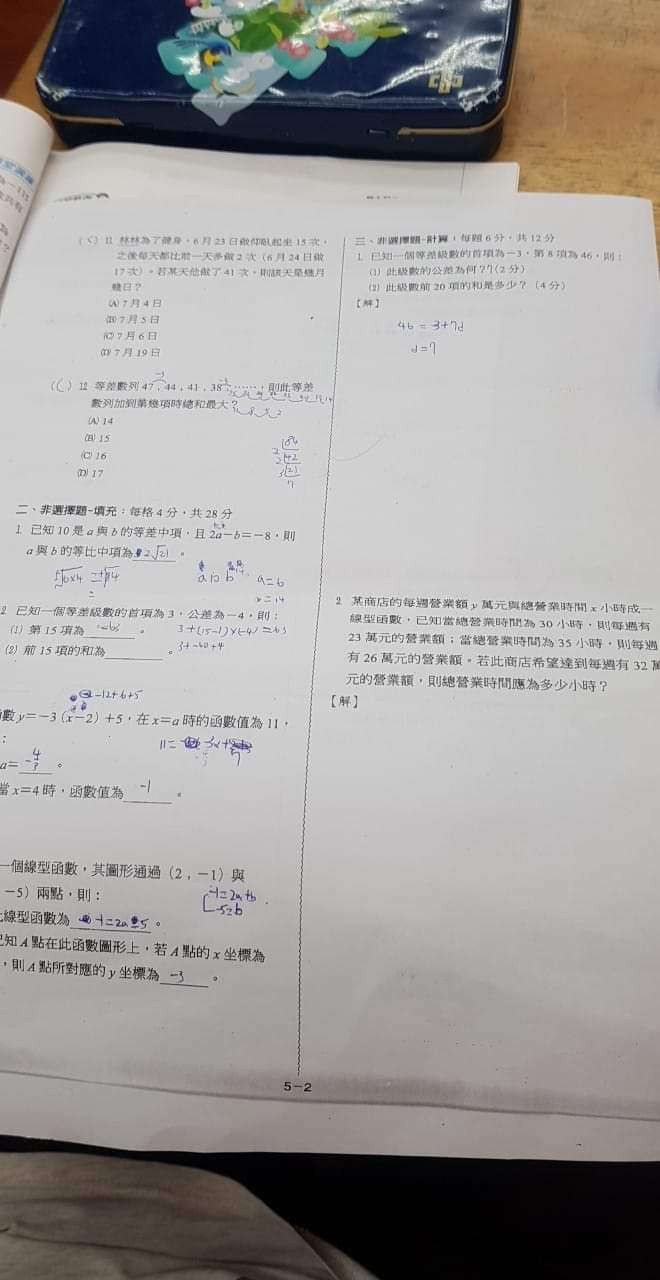 11. 林林為了健身,6 月 23 日做仰臥起坐 15 次,
之後每天都比前一天多做 2 次(6 月 24 日做
17 次)。若某天他做了 41 次,則該天是幾月
幾日?
(A) 7 月 4 日
(B) 7 月 5 日
(C) 7 月 6 日
(D) 7 月 19 日
12. 等差數列 47,44,41,38,……,則此等差
數列加到第幾項時總和最大?
(A) 14
(B) 15
(C) 16
(D) 17
二、非選擇題-填充:每格 4 分,共 28 分
1. 已知 10 是 a 與 b 的等差中項,且 2a-b=-8,則
a 與 b 的等比中項為 2√21 。
a 10 b
a=6
x=14
2. 已知一個等差級數的首項為 3,公差為-4,則:
(1) 第 15 項為 。
3+(15-1)×(-4)
(2) 前 15 項的和為 。
-12+6+5
數 y=-3(x-2)+5,在 x=a 時的函數值為 11,
:
11=
a= 。
當 x=4 時,函數值為 -1 。
一個線型函數,其圖形通過(2,-1)與
-5)兩點,則:
-1=2a+b
-5=b
線型函數為 -1=2a-5 。
知 A 點在此函數圖形上,若 A 點的 x 坐標為
,則 A 點所對應的 y 坐標為 -3 。
三、非選擇題-計算:每題 6 分,共 12 分
1. 已知一個等差級數的首項為-3,第 8 項為 46,則:
(1) 此級數的公差為何?7(2 分)
(2) 此級數前 20 項的和是多少?(4 分)
【解】
46=3+7d
d=7
2. 某商店的每週營業額 y 萬元與總營業時間 x 小時成一
線型函數,已知當總營業時間為 30 小時,則每週有
23 萬元的營業額;當總營業時間為 35 小時,則每週
有 26 萬元的營業額。若此商店希望達到每週有 32 萬
元的營業額,則總營業時間應為多少小時?
【解】
5-2